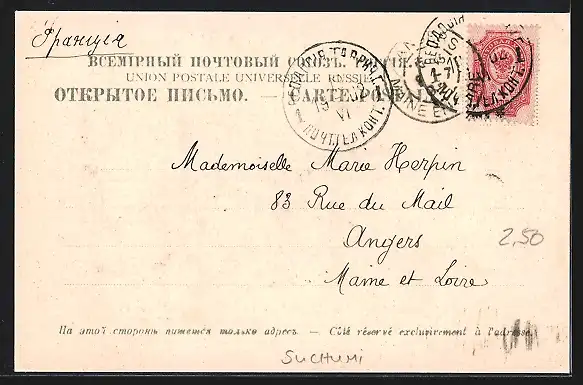 Франція
ВСЕМІРНЫЙ ПОЧТОВЫЙ СОЮЗЪ.
UNION POSTALE UNIVERSELLE RUSSIE
ОТКРЫТОЕ ПИСЬМО. — CARTE POSTALE
Mademoiselle Marie Herpin
83 Rue du Mail
Angers
Maine et Loire
2,50
На этой сторонѣ пишется только адресъ. — Côté réservé exclusivement à l'adresse.
SUCHUMI